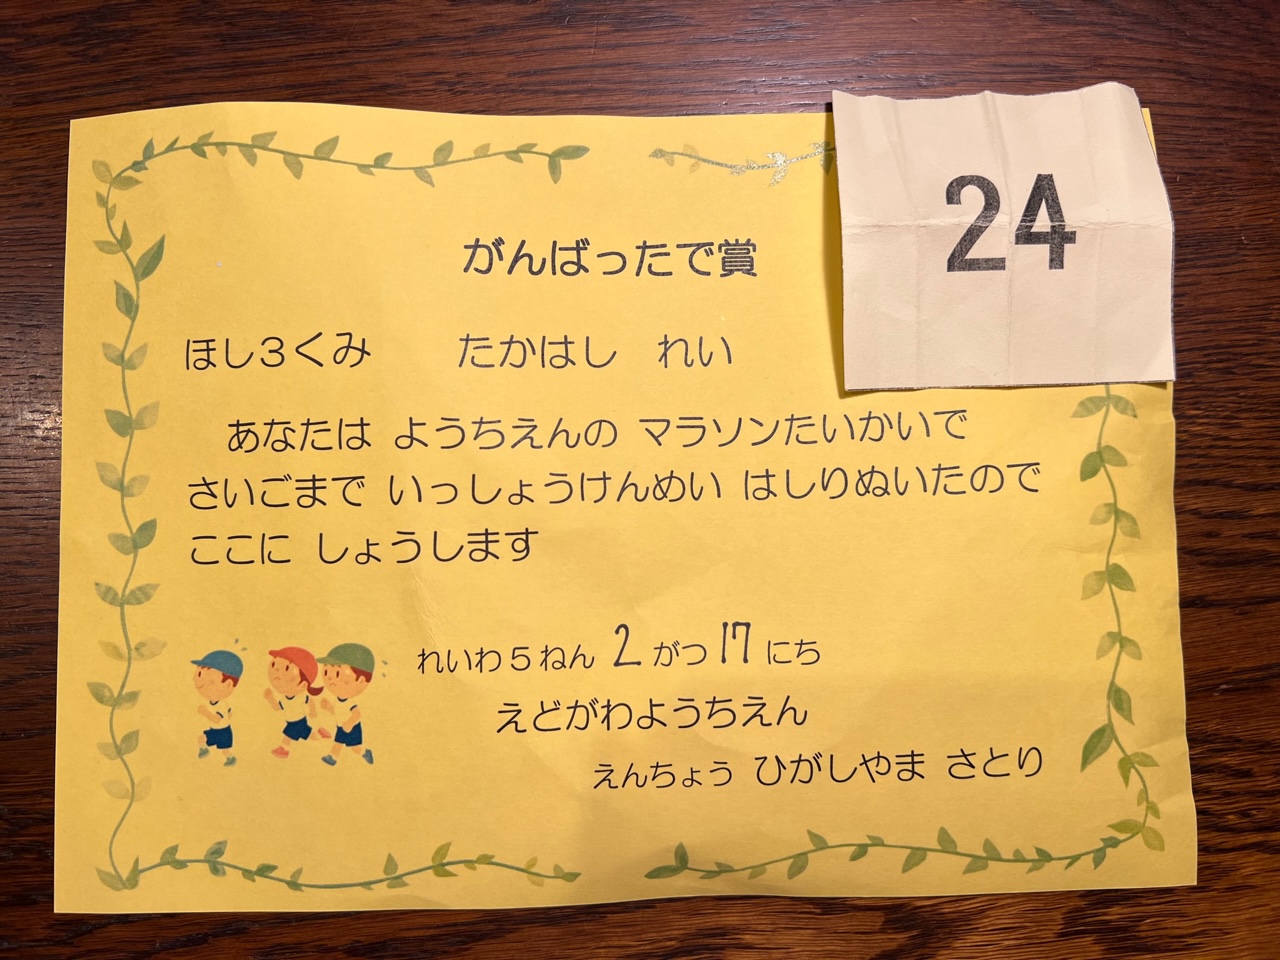 24
がんばったで賞
ほし3くみ たかはし れい
あなたは ようちえんの マラソンたいかいで
さいごまで いっしょうけんめい はしりぬいたので
ここに しょうします
れいわ5ねん 2がつ17にち
えどがわようちえん
えんちょう ひがしやま さとり